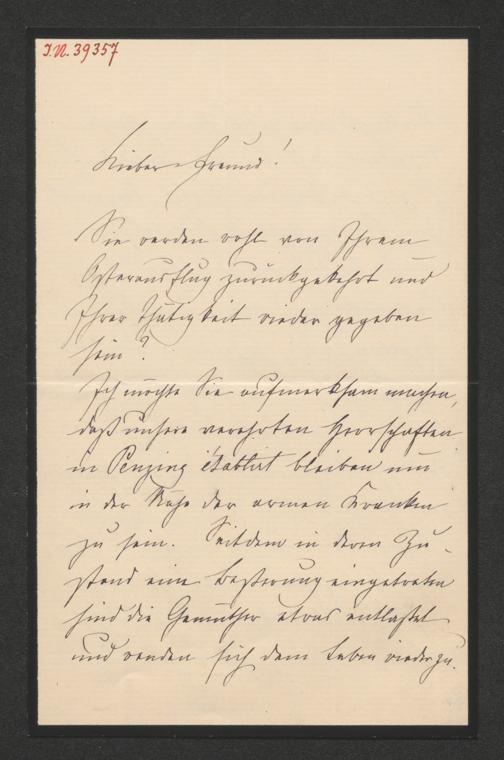 I.N. 39357
Lieber Freund!
Sie werden wohl von Ihrem
Osterausflug zurückgekehrt und
Ihrer Thätigkeit wieder gegeben
sein?
Ich möchte Sie aufmerksam machen,
daß unsere verehrten Herrschaften
in Penzing etablirt bleiben um
in der Nähe der armen Kranken
zu sein. Seitdem in deren Zu-
stand eine Besserung eingetreten
sind die Gemüther etwas entlastet
und wenden sich dem Leben wieder zu.